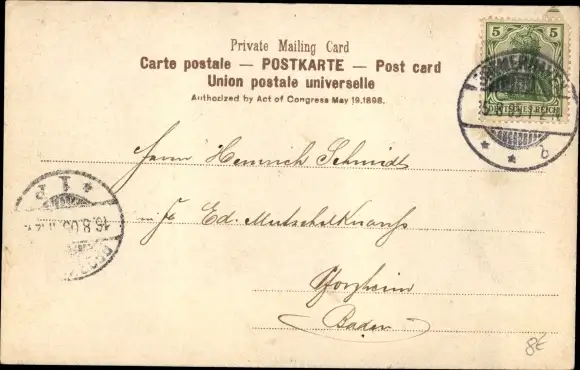 Private Mailing Card
Carte postale — POSTKARTE — Post card
Union postale universelle
Authorized by Act of Congress May 19, 1898.
5 5
DEUTSCHES REICH
Herrn Heinrich Schmidt
Ed. Mutschelknauss
Pforzheim
Baden
8€